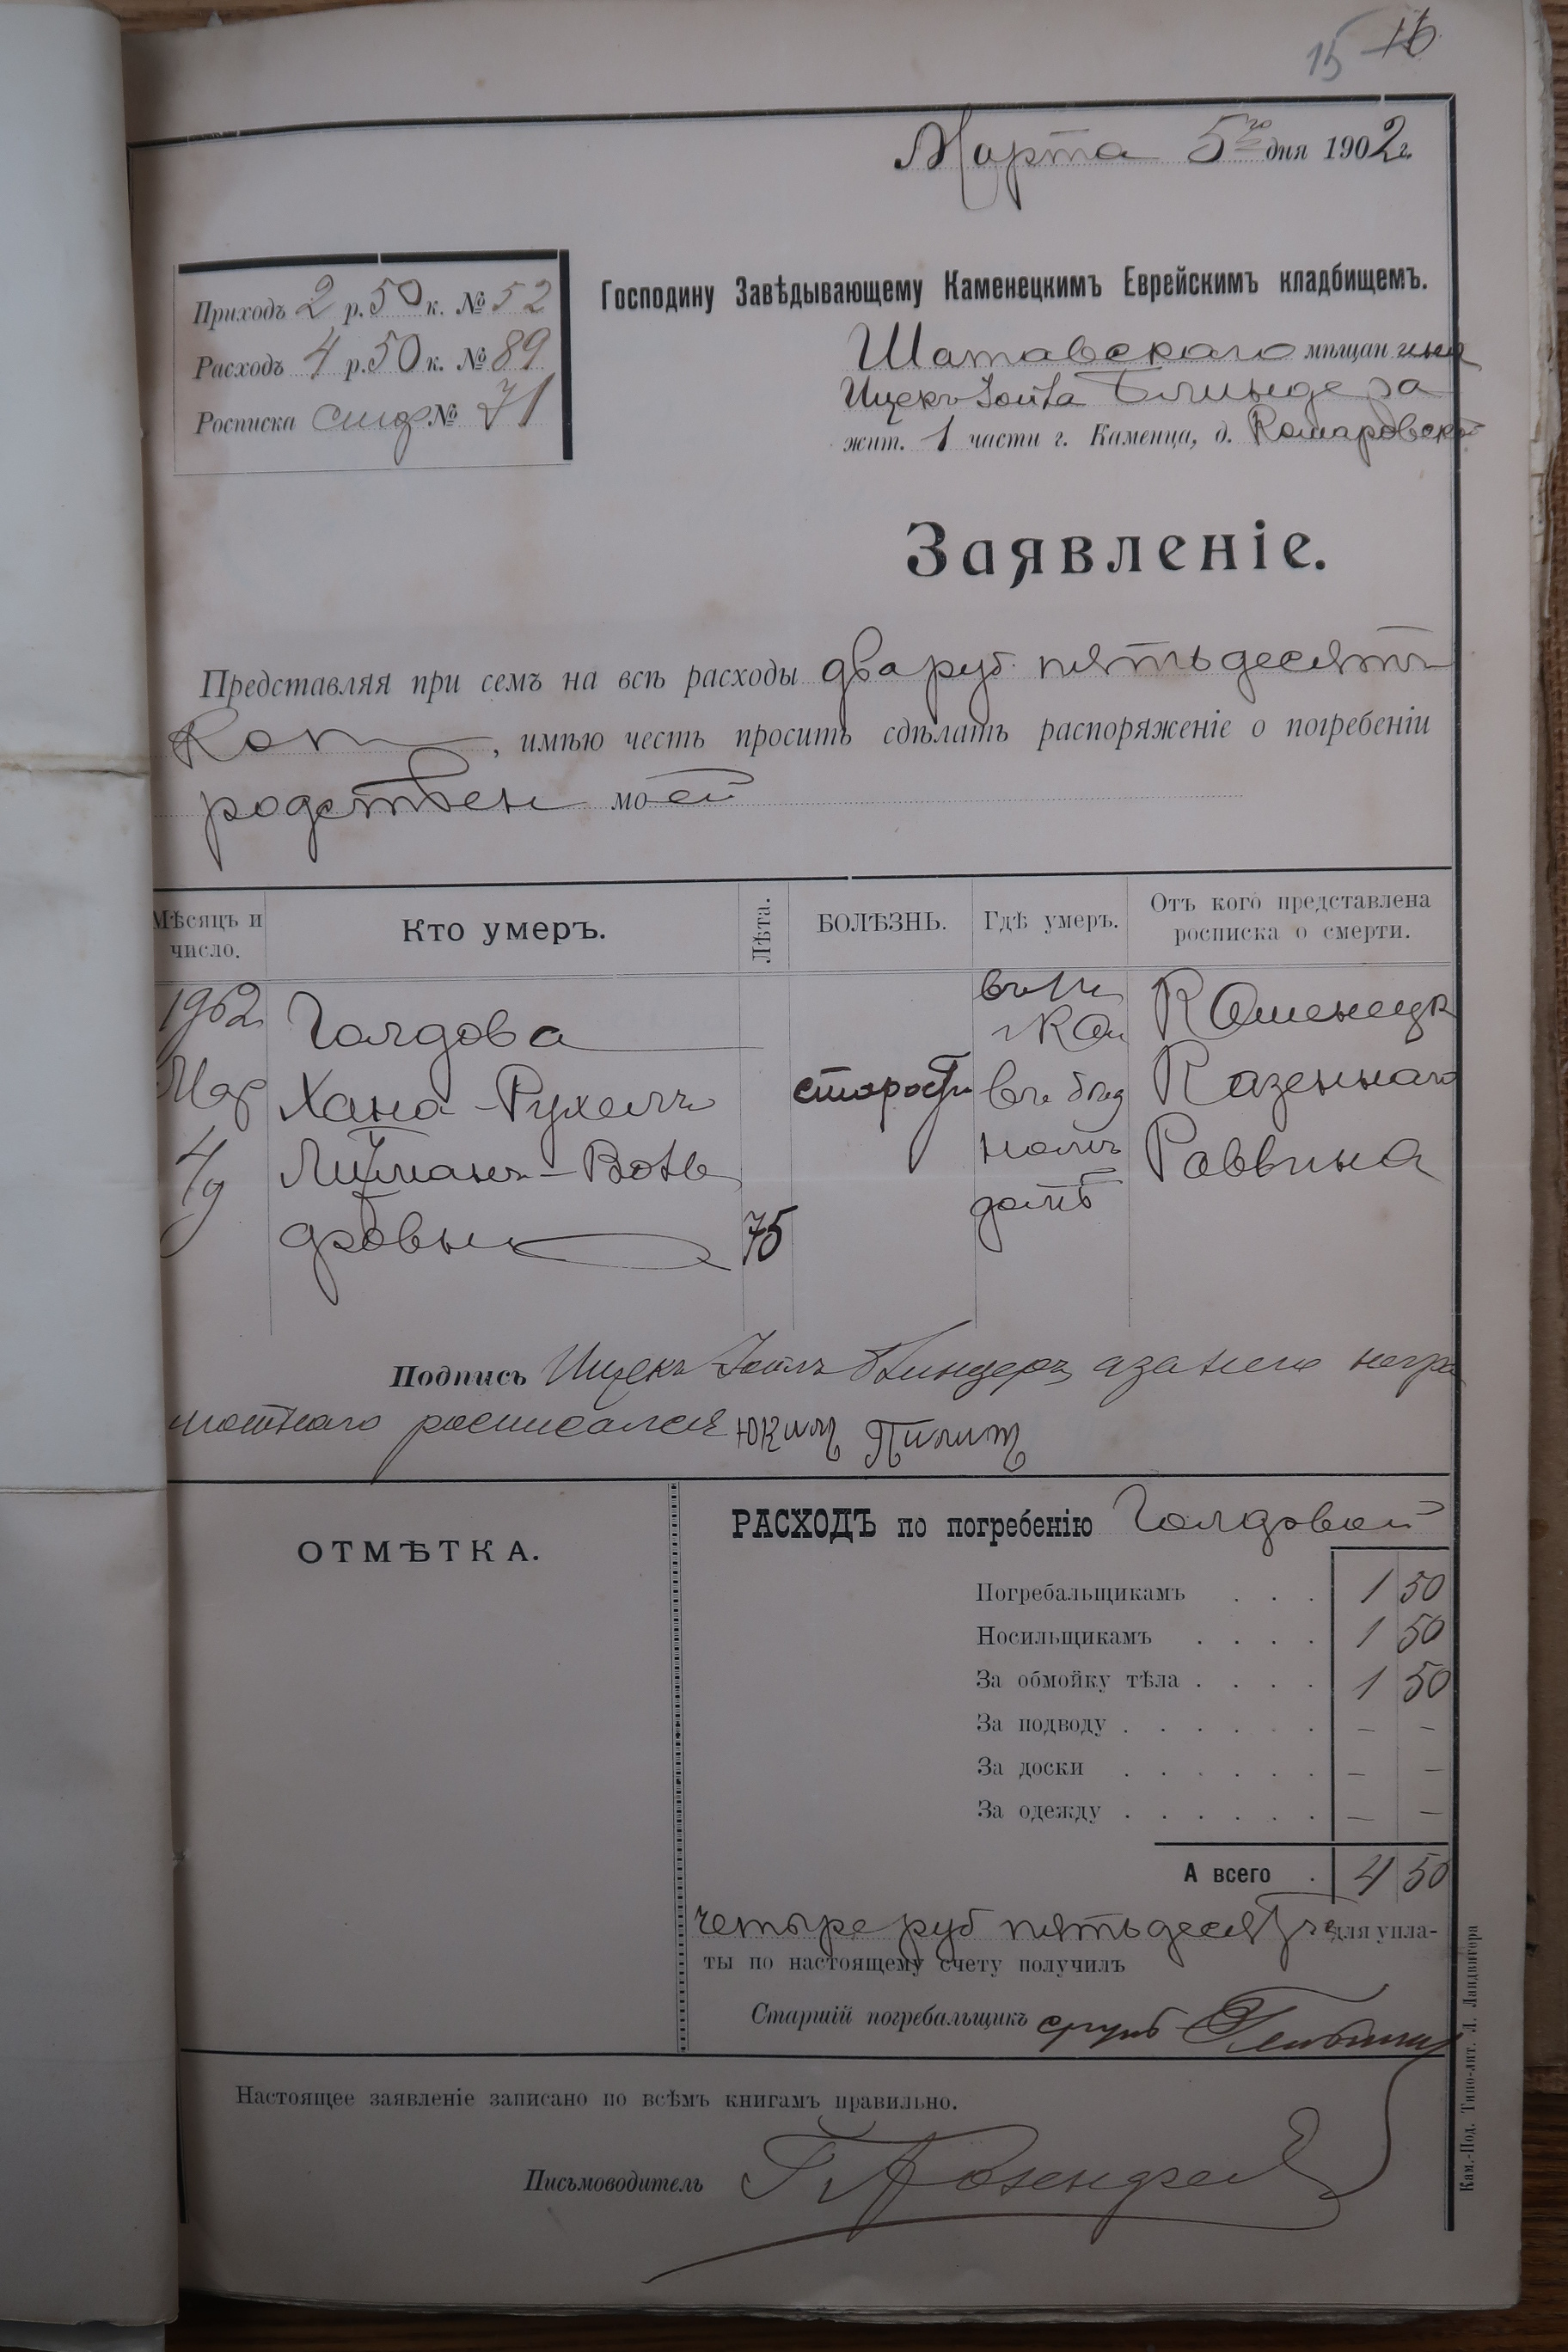 15 16
Марта 5го дня 1902 г.
Приходъ 2 р. 50 к. № 52
Расходъ 4 р. 50 к. № 89
Росписка № 71
Господину Завѣдывающему Каменецкимъ Еврейскимъ кладбищемъ.
Шатавскаго мѣщанина
Ицекъ
жит. 1 части г. Каменца, д. Комаровской
Заявленіе.
Представляя при семъ на всѣ расходы два руб. пятьдесятъ
коп, имѣю честь просить сдѣлать распоряженіе о погребеніи
родствен моей
Мѣсяцъ и число. Кто умеръ. Лѣта. БОЛѢЗНЬ. Гдѣ умеръ. Отъ кого представлена росписка о смерти.
1902 Голдова Каменецк
Мар Хана-Рухель старости Казеннаго
4/9 Литманъ-Вольв номъ Раввина
домѣ
75
Подпись Ицекъ а за него негра
мотнаго росписался
ОТМѢТКА.
РАСХОДЪ по погребенію Голдовой
Погребальщикамъ . . . 1 50
Носильщикамъ . . . . 1 50
За обмойку тѣла . . . . 1 50
За подводу . . . . . . — —
За доски . . . . . . — —
За одежду . . . . . . — —
А всего . 4 50
четыре руб пятьдесят для упла-
ты по настоящему счету получилъ
Старшій погребальщикъ
Настоящее заявленіе записано по всѣмъ книгамъ правильно.
Письмоводитель
Кам.-Под. Типо-лит. Л. Ландвигера